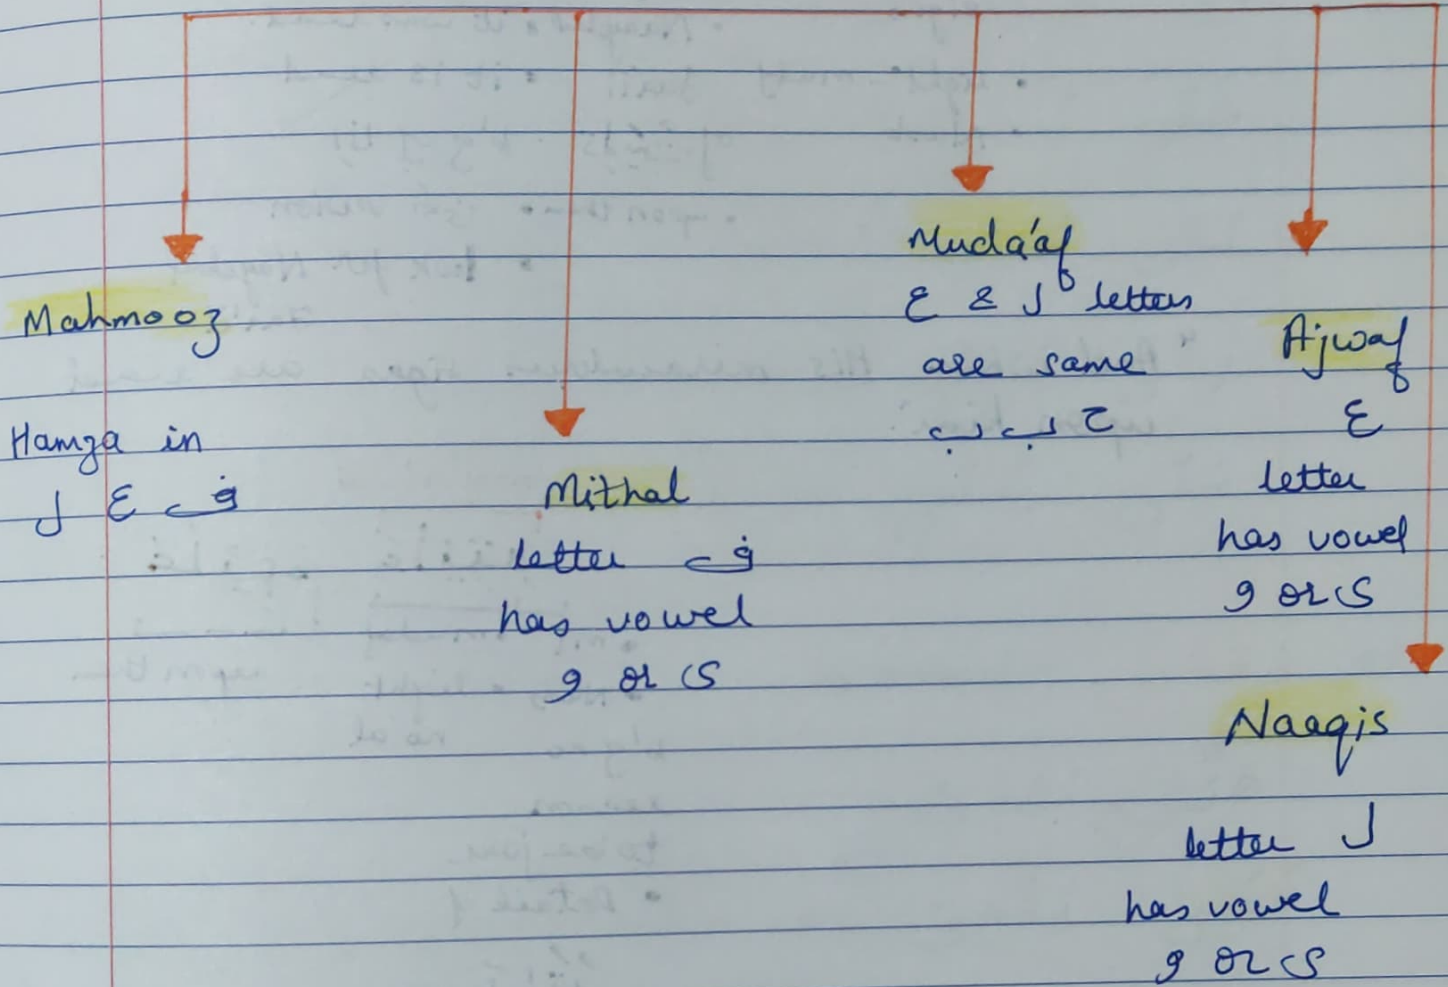 Mahmooz
Hamza in
ف ع ل
Mithal
letter ف
has vowel
و or ی
Muda'af
ع & ل letters
are same
ح ب ب
Ajwaf
ع
letter
has vowel
و or ی
Naaqis
letter ل
has vowel
و or ی